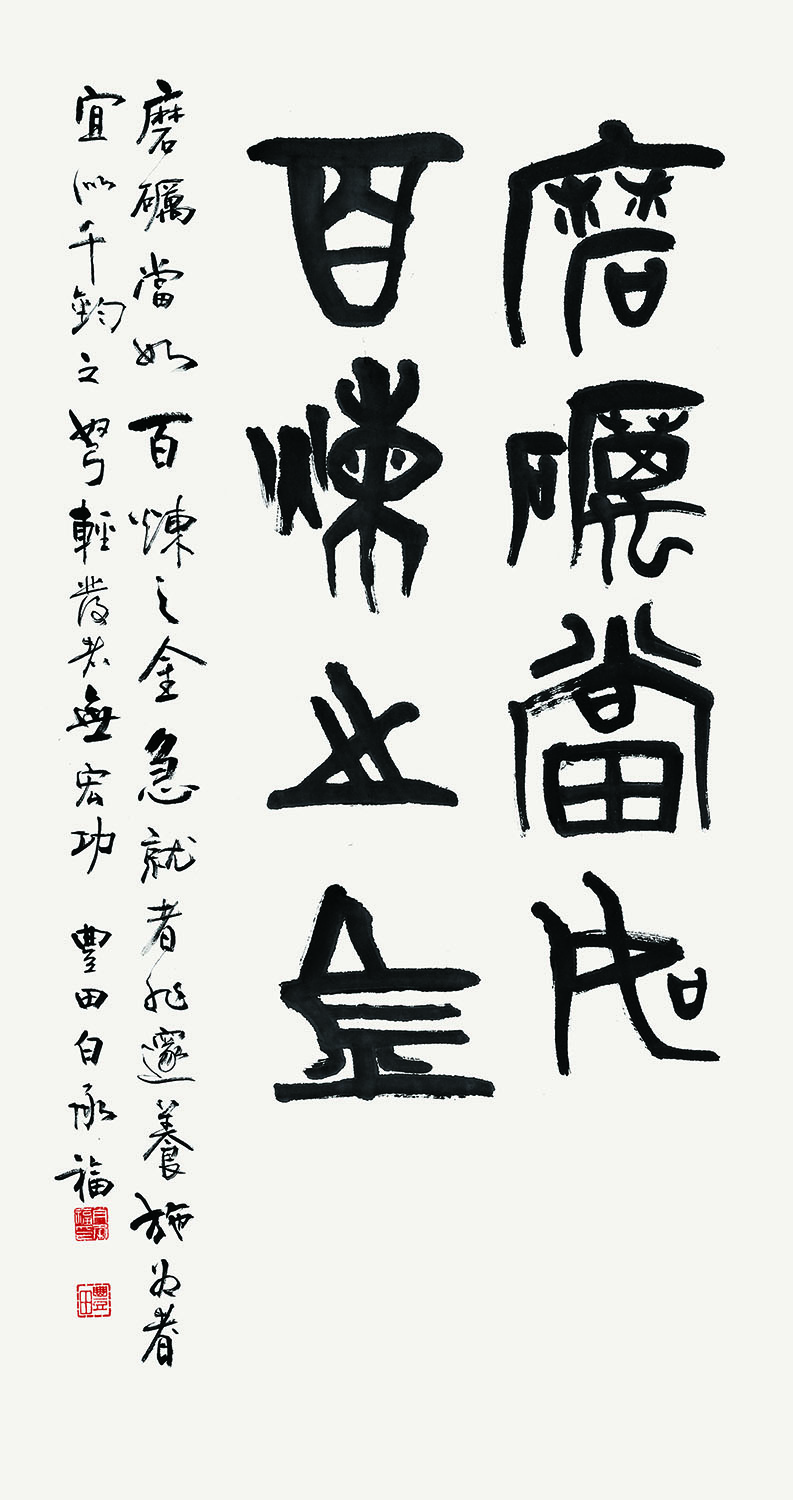 磨礪當如
百煉之金
磨礪當如百煉之金急就者非邃養施為者
宜似千鈞之弩輕發者無宏功 豐田白承福
白承福印
豐田